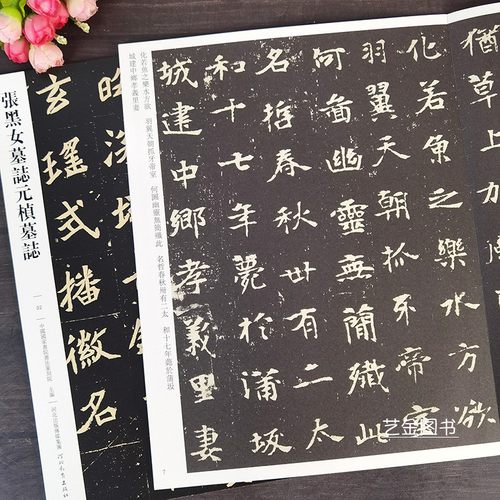 猶草上
化若魚之樂水方欲
羽翼天朝抓牙帝室
何啚幽靈無簡殱此
名哲春秋卅有二太
和十七年薨於蒲坂
城建中鄉孝義里妻
化若魚之樂水方欲 羽翼天朝抓牙帝室 何圖幽靈無簡殲此 名哲春秋卅有二太 和十七年薨於蒲坂
城建中鄉孝義里妻
7
玄瑤式播徽名
張黑女墓誌元楨墓誌
02
主編
河北出版傳媒集團
河北教育出版社
艺金图书